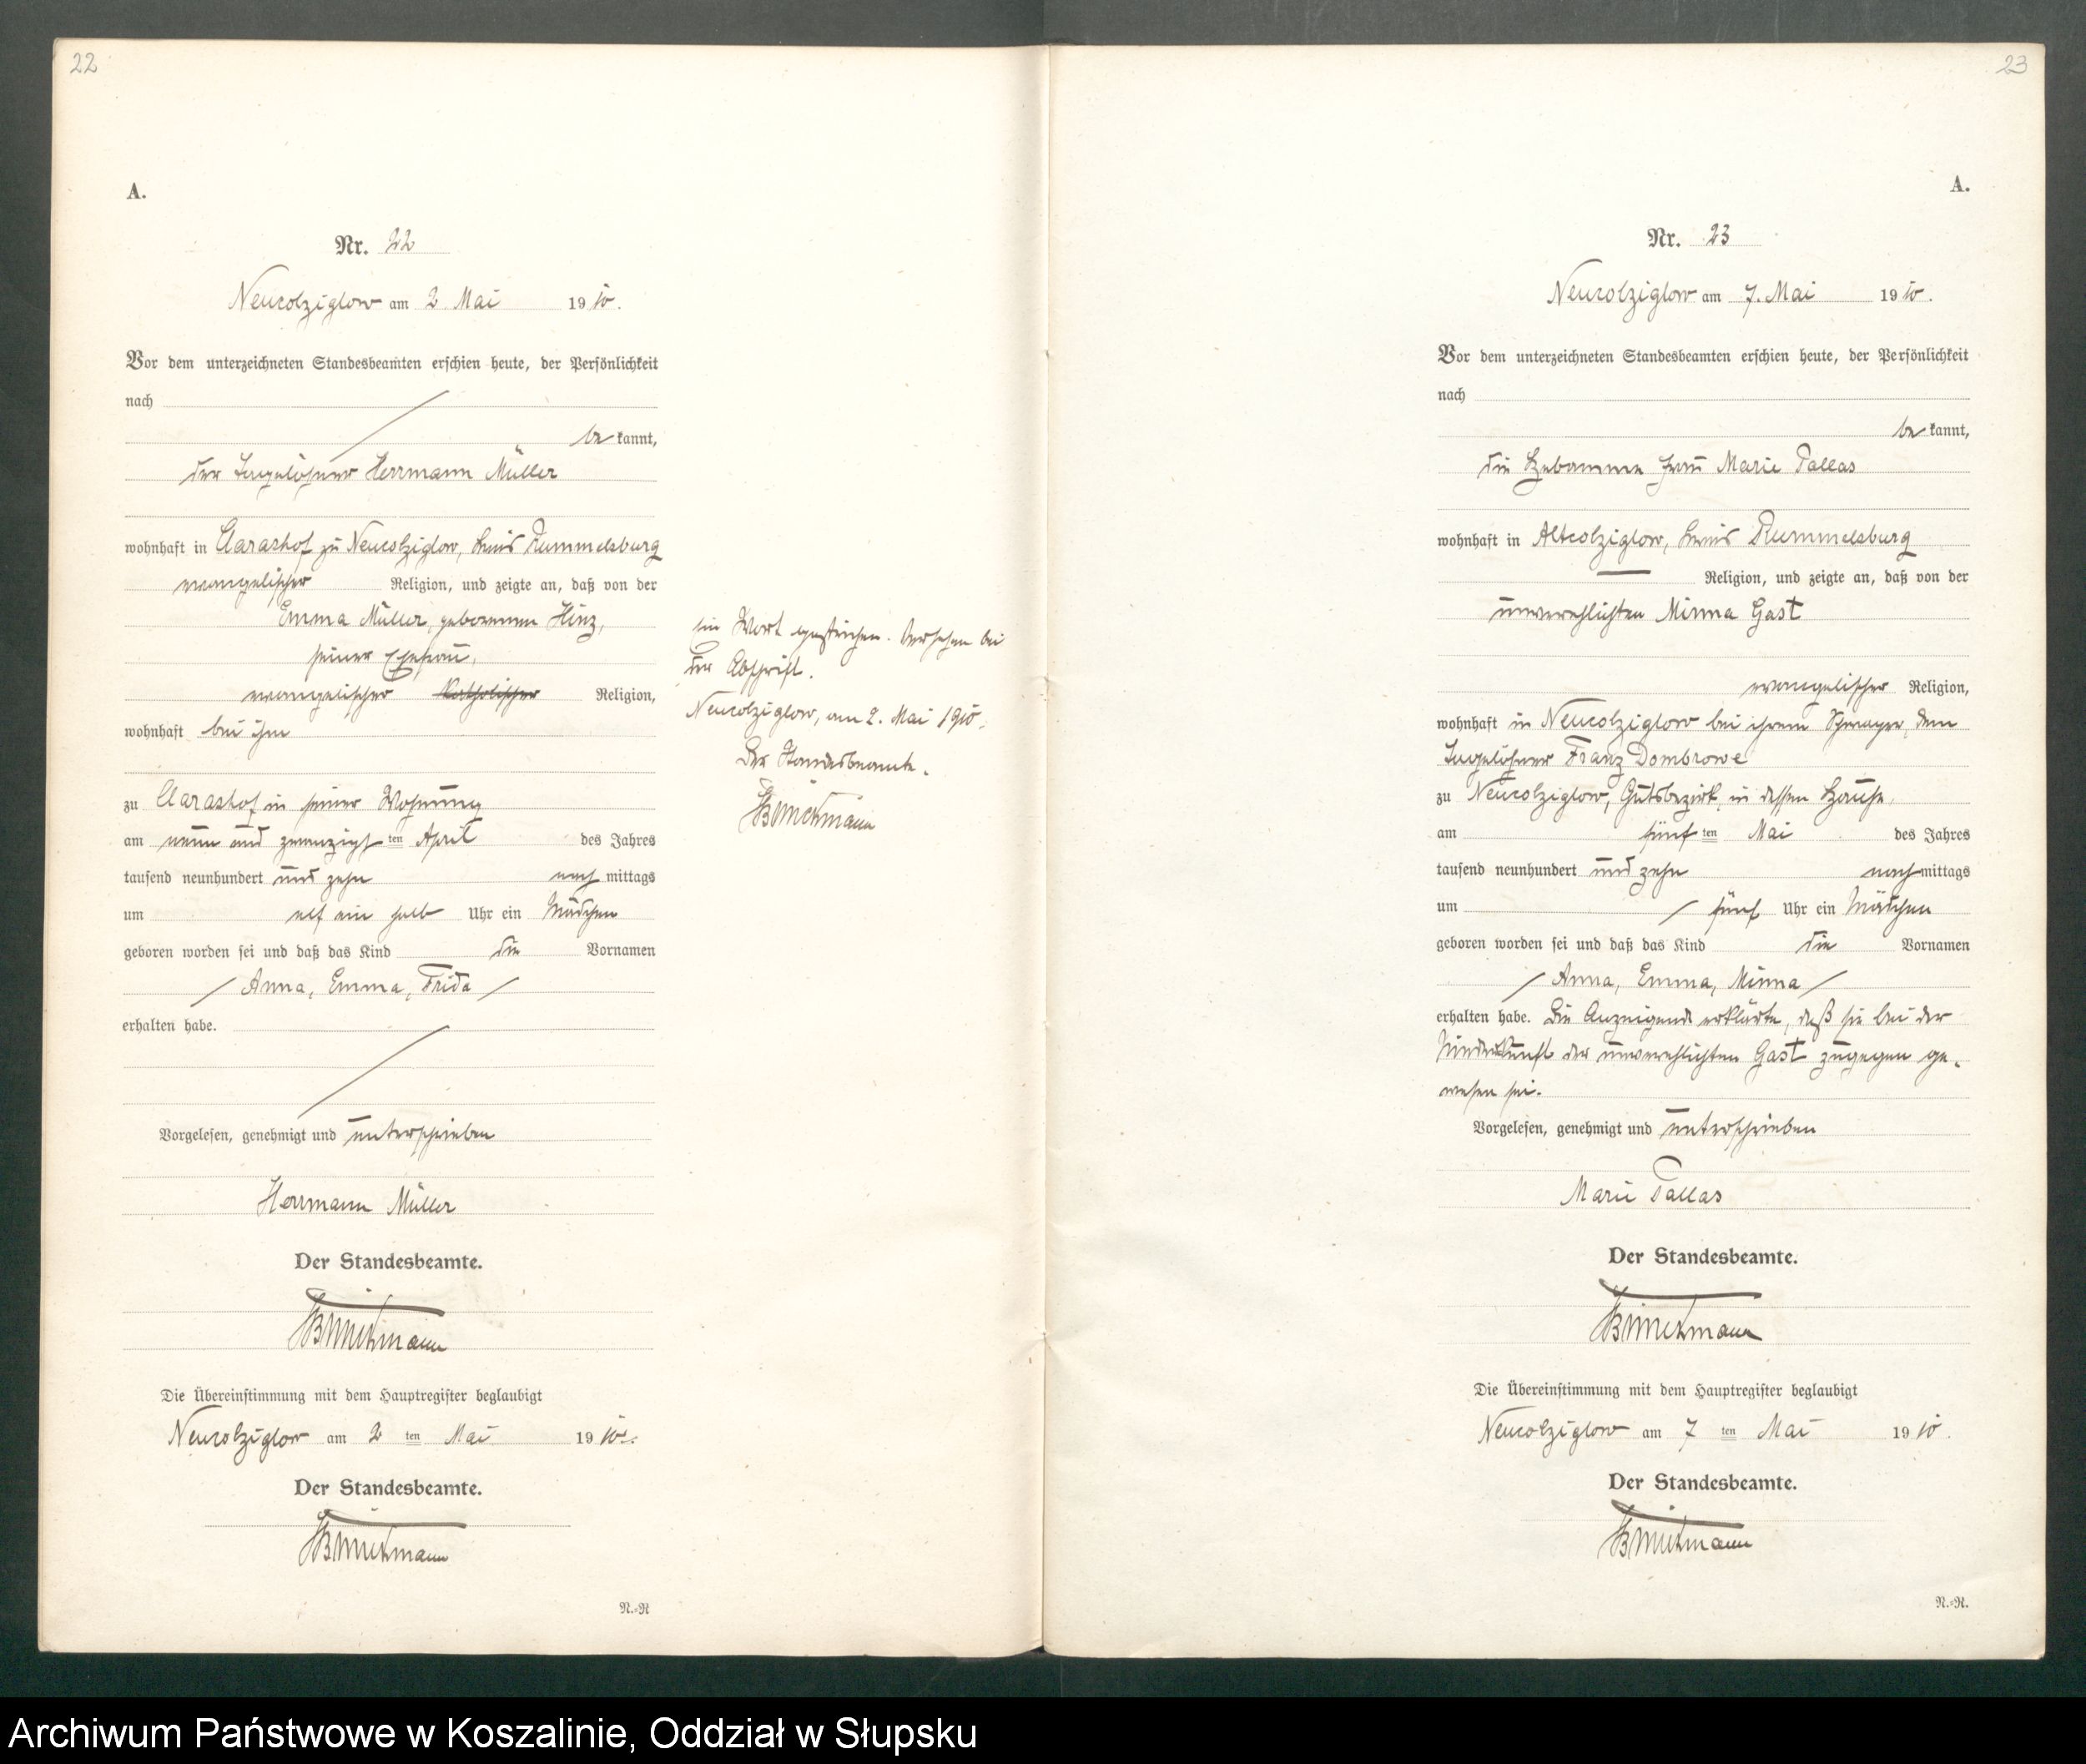 22
A.
Nr. 22
Neucolziglow am 2. Mai 1910.
Vor dem unterzeichneten Standesbeamten erschien heute, der Persönlichkeit
nach
be kannt,
der Tagelöhner Herrmann Müller
wohnhaft in Clarashof zu Neucolziglow, Kreis Rummelsburg
evangelischer Religion, und zeigte an, daß von der
Emma Müller, geborenen Hinz,
seiner Ehefrau,
evangelischer katholischer Religion,
wohnhaft bei ihm
zu Clarashof in seiner Wohnung
am neun und zwanzigsten April des Jahres
tausend neunhundert und zehn nach mittags
um elf ein halb Uhr ein Mädchen
geboren worden sei und daß das Kind die Vornamen
Anna, Emma, Frida
erhalten habe.
Vorgelesen, genehmigt und unterschrieben
Herrmann Müller
Der Standesbeamte.
Die Übereinstimmung mit dem Hauptregister beglaubigt
Neucolziglow am 2 ten Mai 1910.
Der Standesbeamte.
N.-R
Ein Wort gestrichen. Versehen bei
der Abschrift.
Neucolziglow, am 2. Mai 1910.
Der Standesbeamte.
23
A.
Nr. 23
Neucolziglow am 7. Mai 1910.
Vor dem unterzeichneten Standesbeamten erschien heute, der Persönlichkeit
nach
be kannt,
die Hebamme Frau Marie Pallas
wohnhaft in Altcolziglow, Kreis Rummelsburg
Religion, und zeigte an, daß von der
unverehlichten Minna Gast
evangelischer Religion,
wohnhaft in Neucolziglow bei ihrem Schwager, dem
Tagelöhner Franz Dombrowe
zu Neucolziglow, Gutsbezirk, in dessen Hause,
am fünf ten Mai des Jahres
tausend neunhundert und zehn nach mittags
um fünf Uhr ein Mädchen
geboren worden sei und daß das Kind die Vornamen
Anna, Emma, Minna
erhalten habe. Die Anzeigende erklärte, daß sie bei der
Niederkunft der unverehlichten Gast zugegen ge-
wesen sei.
Vorgelesen, genehmigt und unterschrieben
Marie Pallas
Der Standesbeamte.
Die Übereinstimmung mit dem Hauptregister beglaubigt
Neucolziglow am 7 ten Mai 1910.
Der Standesbeamte.
N.-R.
Archiwum Państwowe w Koszalinie, Oddział w Słupsku